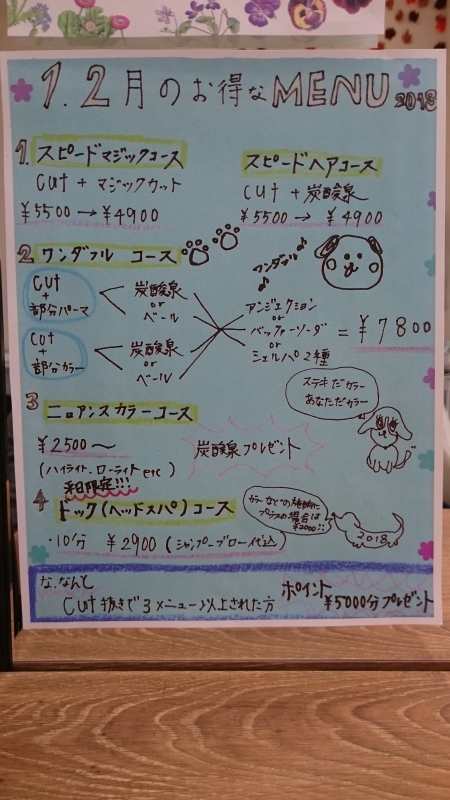 1.2月のお得なMENU 2018
1. スピードマジックコース
cut + マジックカット
¥5500→¥4900
スピードヘアコース
cut + 炭酸泉
¥5500→¥4900
2 ワンダフル コース
ワンダフル♪
cut
+
部分パーマ
炭酸泉
or
ベール
cut
+
部分カラー
炭酸泉
or
ベール
アンジェクション
or
バッファーソーダ
or
シェルパ2種
= ¥7800
ステキだカラー
あなただカラー
3 ニュアンスカラーコース
¥2500〜
(ハイライト.ローライト etc)
炭酸泉プレゼント
平日限定!!!
4 トック(ヘッドスパ)コース
・10分 ¥2900 (シャンプーブロー代込)
カラーなどの施術に
プラスの場合は
¥2000!!
2018
な.なんと
Cut 抜きで3メニュー以上された方
ポイント
¥5000分プレゼント